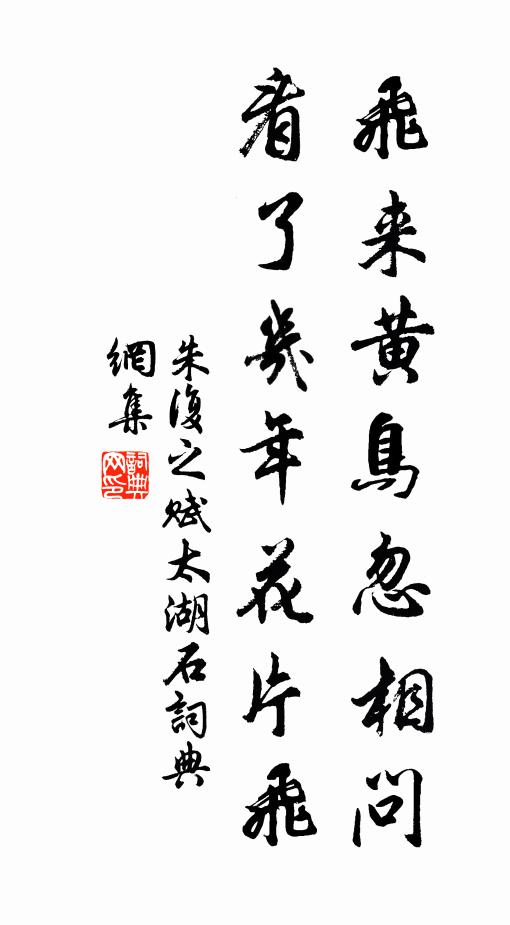 飛来黄鳥忽相問
看了幾年花片飛
朱復之賦太湖石詞典
網集
詞典網印